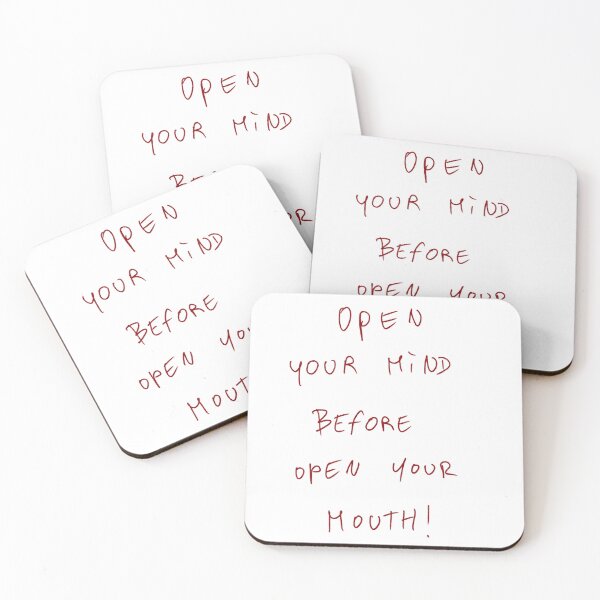 OPEN
YOUR MIND
BEFORE
OPEN YOUR
OPEN
YOUR MIND
BEFORE
OPEN
MOUTH
OPEN
YOUR MIND
BEFORE
OPEN YOUR
OPEN
YOUR MIND
BEFORE
OPEN YOUR
MOUTH!